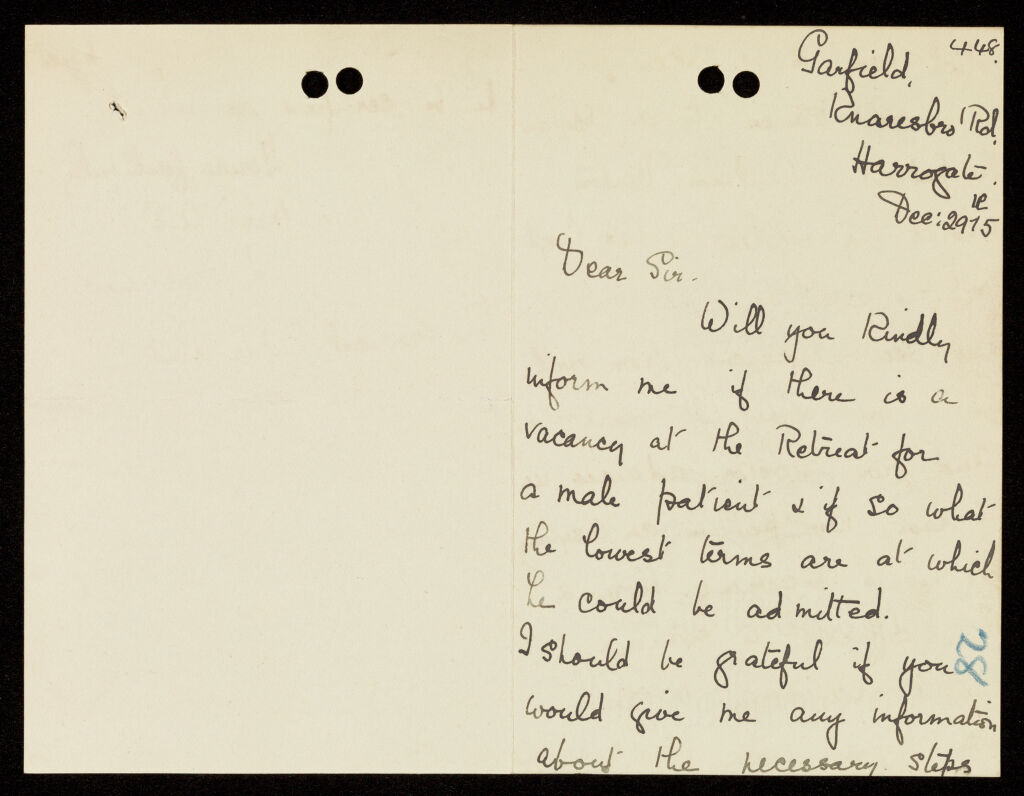 448.
Garfield,
Knaresbro' Rd.
Harrogate.
Dec: 29 15
Dear Sir.
Will you Kindly
inform me if there is a
vacancy at the Retreat for
a male patient & if so what
the lowest terms are at which
he could be admitted.
I should be grateful if you
28
would give me any information
about the necessary steps